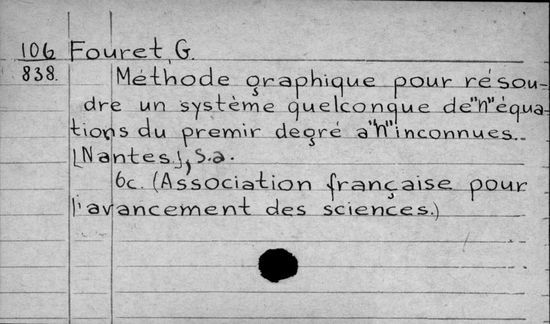 106 Fouret, G.
838. Méthode graphique pour résou-
dre un système quelconque de "n" équa-
tions du premir degré a "n" inconnues.
[Nantes], s.a.
6c. (Association française pour
l'avancement des sciences.)